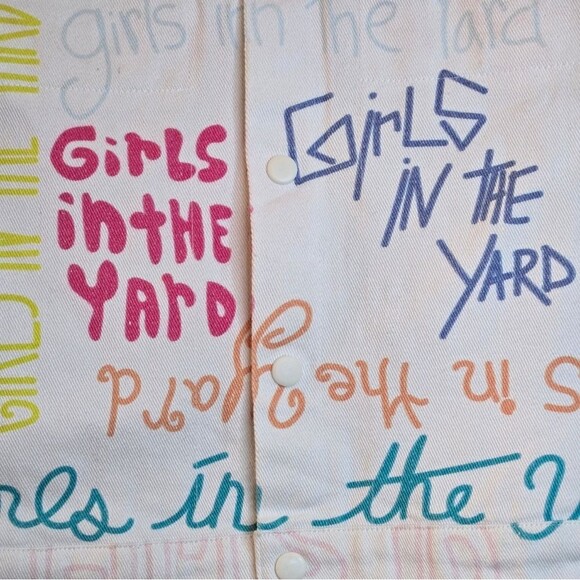 girls inh the Yard
GirLs
in tHE
YArD
GirLS
IN THE
YARD
GIRLS IN THE YARD
s in the Yard
rls in the Y